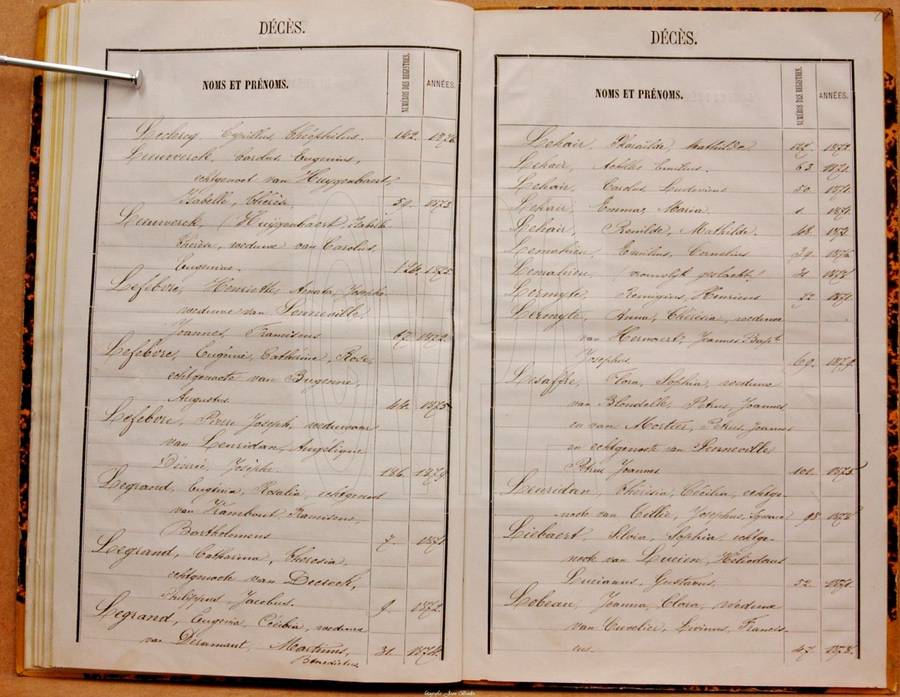 DÉCÈS.
NOMS ET PRÉNOMS. NUMÉROS DES REGISTRES. ANNÉES.
Leclercq, Cyrillus Théophilus. 162. 1876
Leuwerck, Carolus Eugenius,
echtgenoot van Huyzenbaert,
Isabelle, Thérèse 59. 1873
Leuwerck, (Huyzenbaert, Isabelle
Thérèse, weduwe van Carolus
Eugenius. 1875
Lefebvre, Henriette, Amata, Josepha
weduwe van Senneville
Joannes Franciscus 67. 1872.
Lefebvre, Eugénie, Catherine, Rose,
echtgenoote van
Augustus 44. 1875
Lefebvre, Pierre Joseph, weduwaar
van Leuridan, Angélique
Désiré, Josèphe. 186. 1879
Legrand, Eugénia, Rosalia, echtgenoot
van Franciscus,
Bartholomeus 7. 1871
Legrand, Catharina, Theresia
echtgenoote van
Philippus Jacobus. 9. 1872.
Legrand, Eugenia, Cecilia, weduwe
van Martinus, 31. 1874.
Benedictus
DÉCÈS.
NOMS ET PRÉNOMS. NUMÉROS DES REGISTRES. ANNÉES.
Lehair, Pharaïlde Mathilde
Lehair, Achilles Emilius. 63. 1871.
Lehair, Carolus Ludovicus 50. 1871.
Lehair, Emma, Maria. 1. 1871.
Lehair, Romilde, Mathilde. 48. 187
Lemahieu, Emilius, Cornelius 39. 1876
Lemahieu, 31. 1878
Lermyte, Remigius, Henricus 52 1871.
Lermyte, Anna, Thérèsia, weduwe
van Hernaert, Joannes Bapt.
Josephus 69. 1879.
Lesaffre, Flora, Sophia, weduwe
van Blondelle, Petrus, Joannes
en van Mortier, Petrus, Joannes
en echtgenoote van
Petrus Joannes 101. 1875
Leuridan, Thérèsia, Cécilia, echtge-
noote van Cillie, Josephus, 98 187
Liebaert, Silvia, Sophia echtge-
noote van Lucien, Heliodorus
Lucianus, Gustavus 52. 1871.
Lobeau, Joanna, Clara, weduwe
van Cuvelier, Livinus, Francis-
cus. 47. 1878.